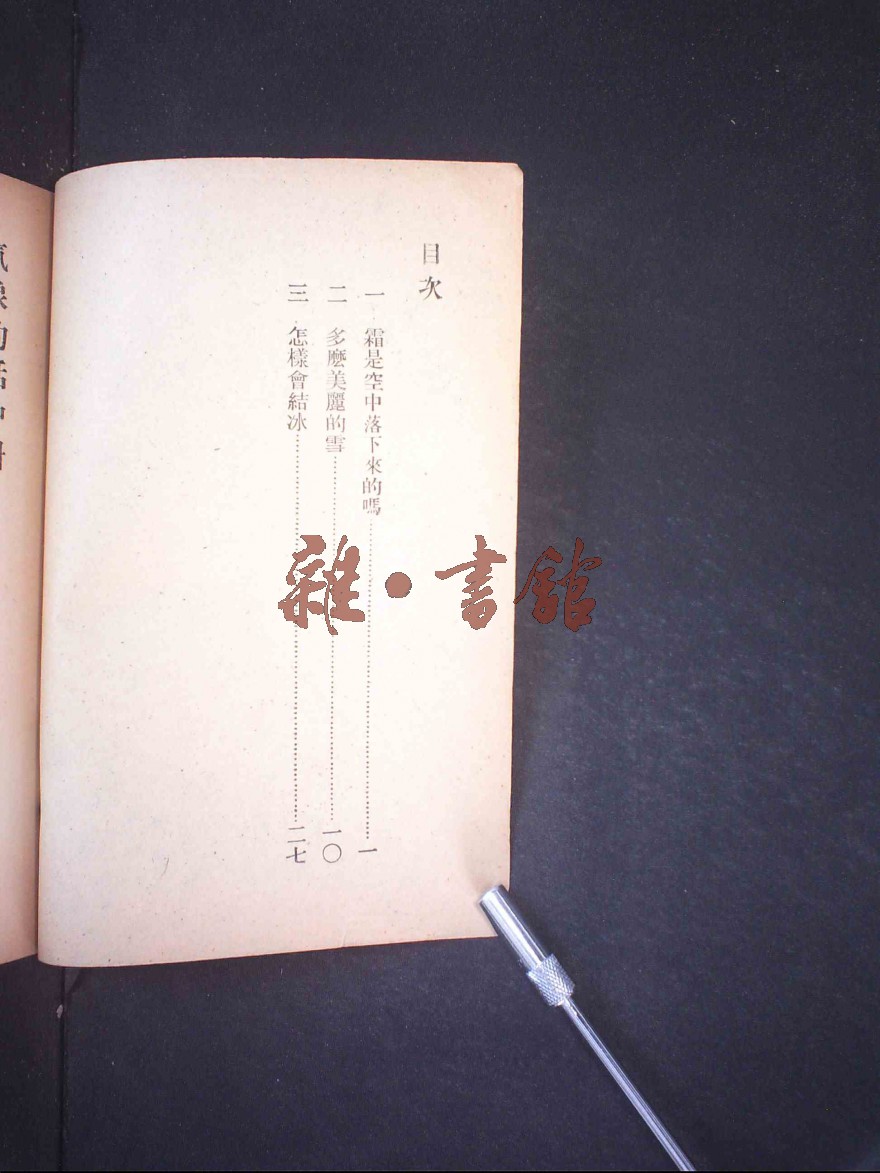 目次
一 霜是空中落下來的嗎……一
二 多麽美麗的雪……一〇
三 怎樣會結冰……二七
雜·書館